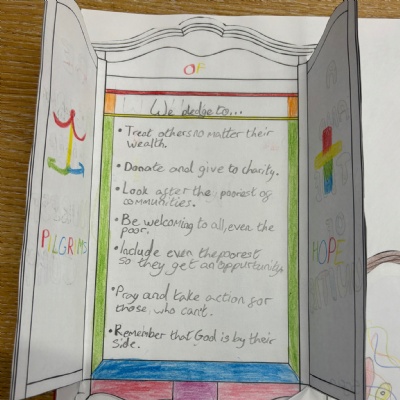 OF
We pledge to...
• Treat others no matter their
wealth.
• Donate and give to charity.
• Look after the poorest of
communities.
• Be welcoming to all, even the
poor.
• Include even the poorest
so they get an oppurtunity
• Pray and take action for
those who can't.
• Remember that God is by their
side.
PILGRIMS
HOPE